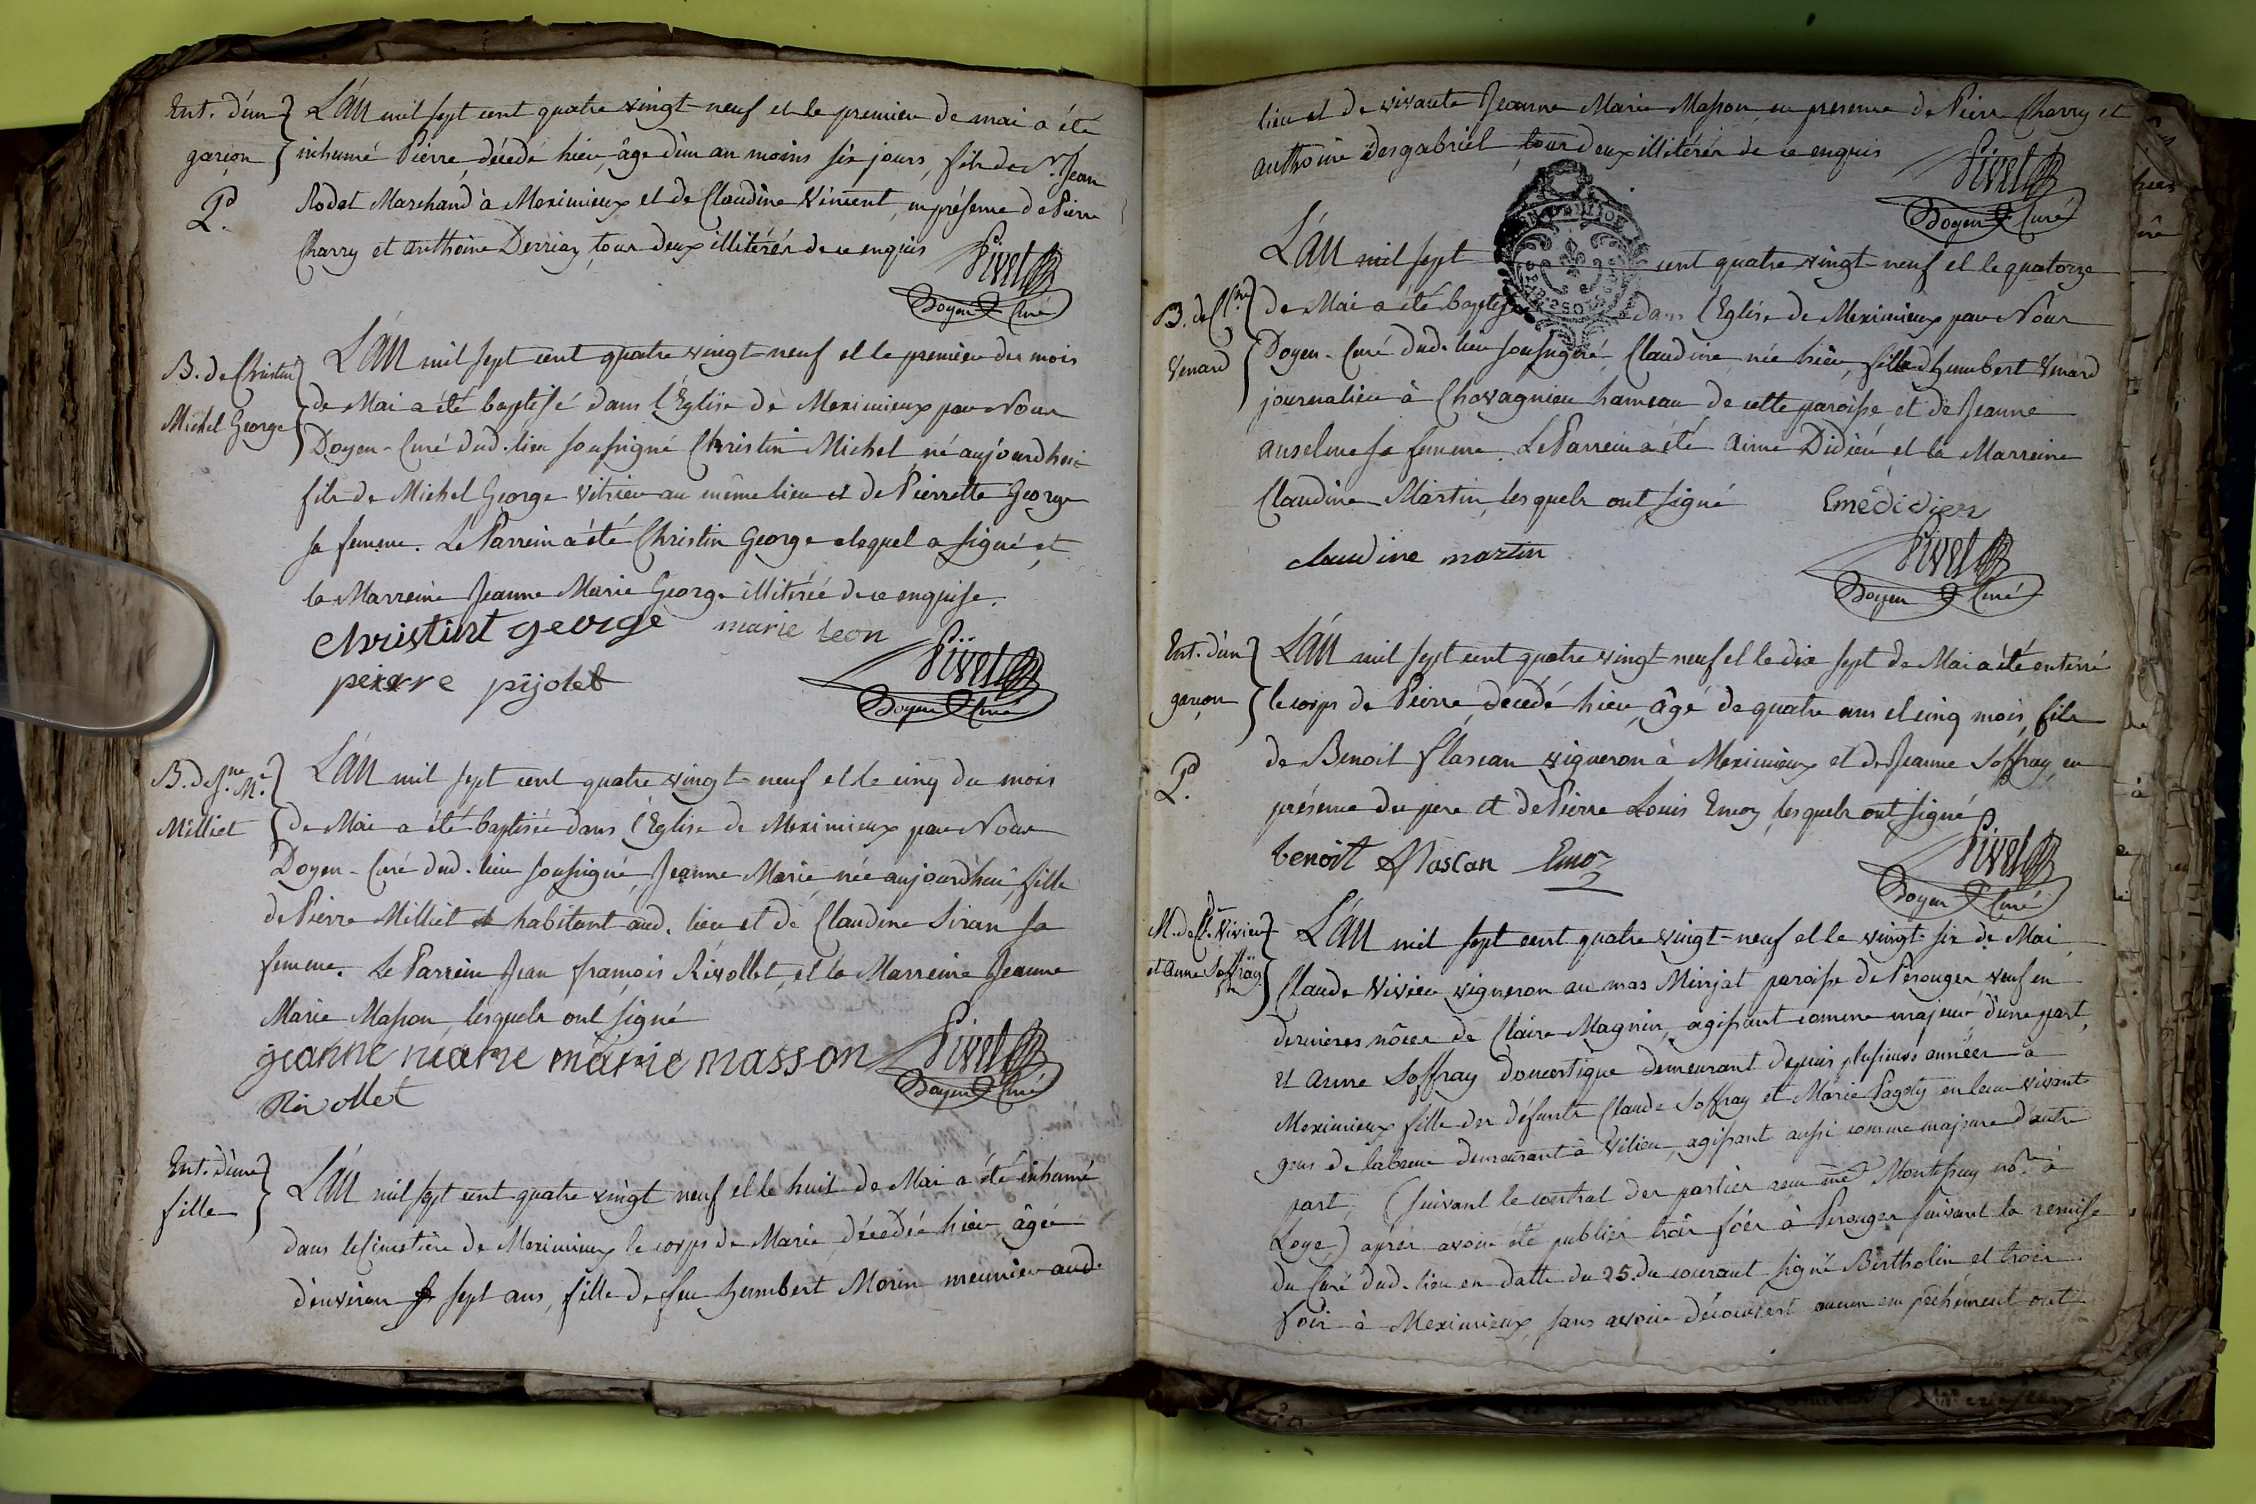 Ent. d'un
garçon
Pd.
L'An mil sept cent quatre vingt-neuf et le premier de mai a été
inhumé Pierre, décedé hier, âgé d'un an moins six jours, fils de Sr. Jean
Rodet Marchand à Meximieux et de Claudine Vincent, en présence de Pierre
Charry et Anthoine Derriaz, tous deux illitérés de ce enquis
Pivet
Doyen Curé
B. de Christin
Michel George
L'An mil sept cent quatre vingt-neuf et le premier du mois
de Mai a été baptisé dans l'Eglise de Meximieux par Nous
Doyen-Curé dud. lieu soussigné Christin Michel, né aujourd'hui
fils de Michel George vitrier au même lieu et de Pierrette George
sa femme. Le Parrein a été Christin George lequel a signé et
la Marreine Jeanne Marie George illitérée de ce enquise.
christint george marie leon
peirre pijolet
Pivet
Doyen Curé
B. de Jne. Me.
Milliet
L'An mil sept cent quatre vingt-neuf et le cinq du mois
de Mai a été baptisée dans l'Eglise de Meximieux par Nous
Doyen-Curé dud. lieu soussigné, Jeanne Marie, née aujourd'hui, fille
de Pierre Milliet habitant aud. lieu et de Claudine Siran sa
femme. Le Parrein Jean françois Rivollet, et la Marreine Jeanne
Marie Masson, lesquels ont signé
jeanne marie masson
Rivollet
Pivet
Doyen Curé
Ent. d'une
fille
L'An mil sept cent quatre vingt neuf et le huit de Mai a été inhumé
dans le Cimetière de Meximieux le corps de Marie, décedée hier, âgée
d'environ sept ans, fille de feu humbert Morin meunier aud.
lieu et de vivante Jeanne Marie Masson, en presence de Pierre Charry et
Anthoine Desgabriel, tous deux illitérés de ce enquis
Pivet
Doyen Curé
B. de Cl.ne
Venard
L'An mil sept cent quatre vingt-neuf et le quatorze
de Mai a été baptisée dans l'Eglise de Meximieux par Nous
Doyen-Curé dud. lieu soussigné, Claudine, née hier, fille d'humbert Venard
journalier à Chavagnieu hameau de cette paroisse et de Jeanne
Anselme sa femme. Le Parrein a été Aimé Didier et la Marreine
Claudine Martin, lesquels ont signé
Emédidier
claudine martin
Pivet
Doyen Curé
Ent. d'un
garçon
Pd.
L'An mil sept cent quatre vingt neuf et le dix sept de Mai a été enterré
le corps de Pierre, décedé hier, âgé de quatre ans et cinq mois, fils
de Benoit Flascan vigneron à Meximieux et de Jeanne Soffray, en
présence du pere et de Pierre Louis Emoz, lesquels ont signé
benoit flascan Emoz
Pivet
Doyen Curé
M. de Cde. Vivier
et Anne Soffray
L'An mil sept cent quatre vingt-neuf et le vingt-six de Mai
Claude Vivier vigneron au mas Minjat paroisse de Pérouges, veuf en
dernieres nôces de Claire Magnin, agissant comme majeur d'une part,
et Anne Soffray domestique demeurant depuis plusieurs années à
Meximieux fille des défunts Claude Soffray et Marie Pagoty en leur vivant
gens de labeur demeurant à Vilieu, agissant aussi comme majeure d'autre
part, (suivant le contrat des parties reçu me Montefray nore. à
Loye) après avoir été publiés trois fois à Pérouges suivant la remise
du Curé dud. lieu en datte du 25. du courant signé Bertholin et trois
fois à Meximieux, sans avoir découvert aucun empêchement ont